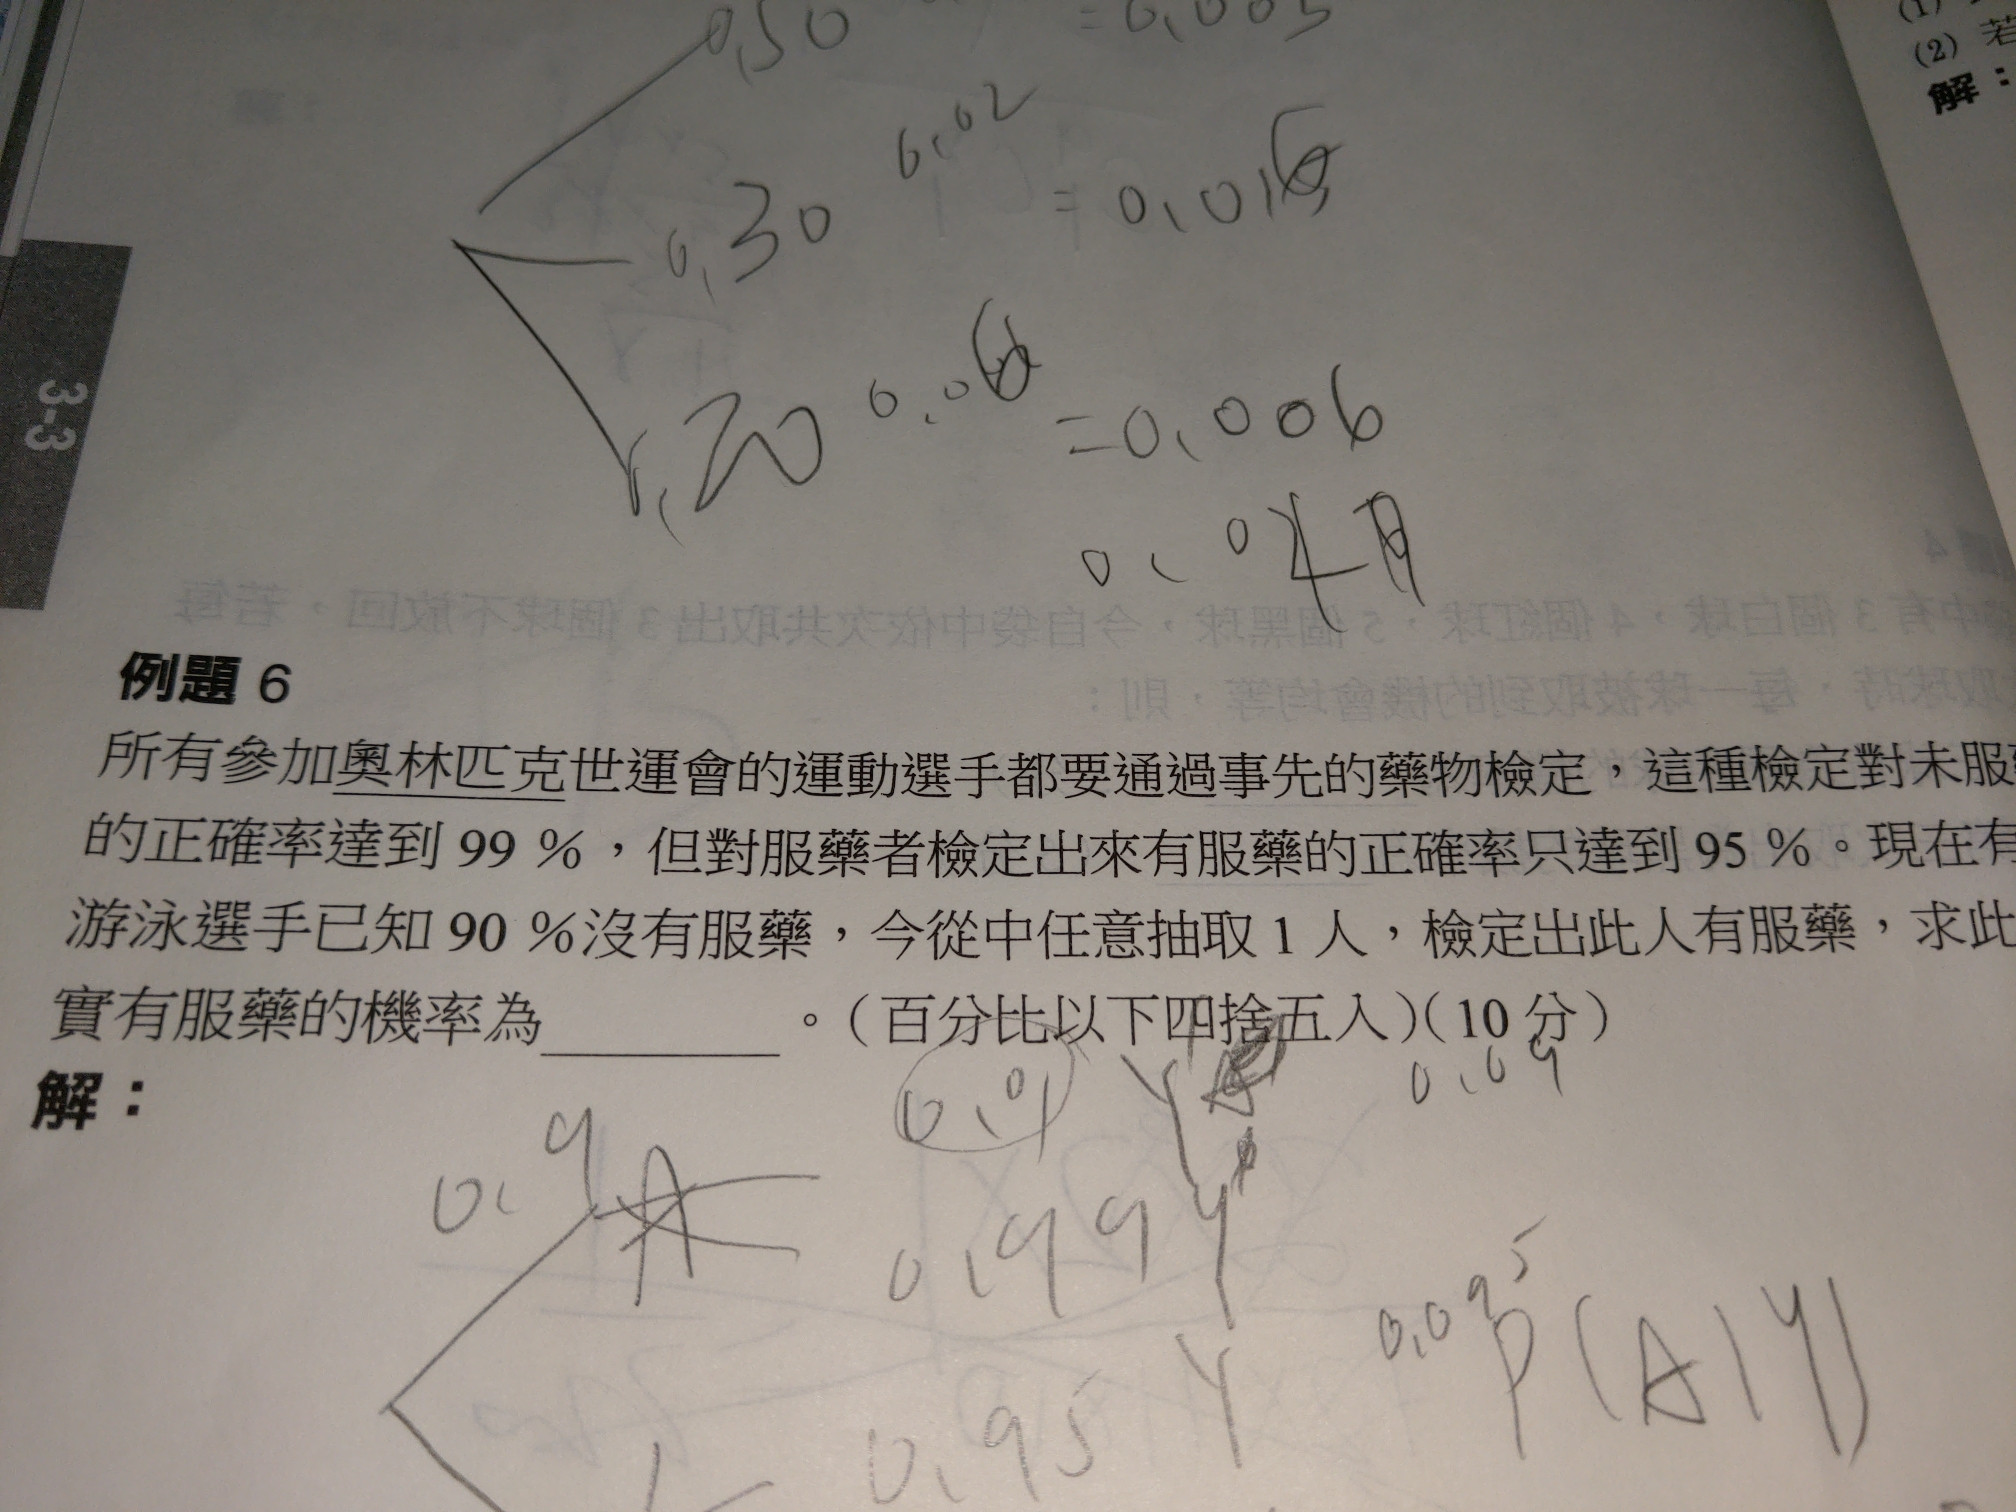 (1)
(2) 若
解：
0.50 = 0.005
0.30 0.02 = 0.016
0.20 0.06 = 0.006
3-3
例題 6
所有參加奧林匹克世運會的運動選手都要通過事先的藥物檢定，這種檢定對未服
的正確率達到 99 %，但對服藥者檢定出來有服藥的正確率只達到 95 %。現在有
游泳選手已知 90 %沒有服藥，今從中任意抽取 1 人，檢定出此人有服藥，求此
實有服藥的機率為 。（百分比以下四捨五入）（10 分）
解：
0.01 Y 0.09
0.9 A
0.99 Y
0.95 Y 0.095 P(A|Y)